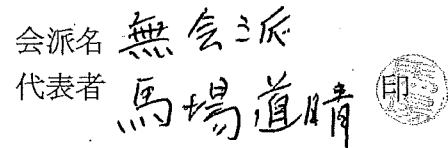 会派名 無会派
代表者 馬場道晴 印